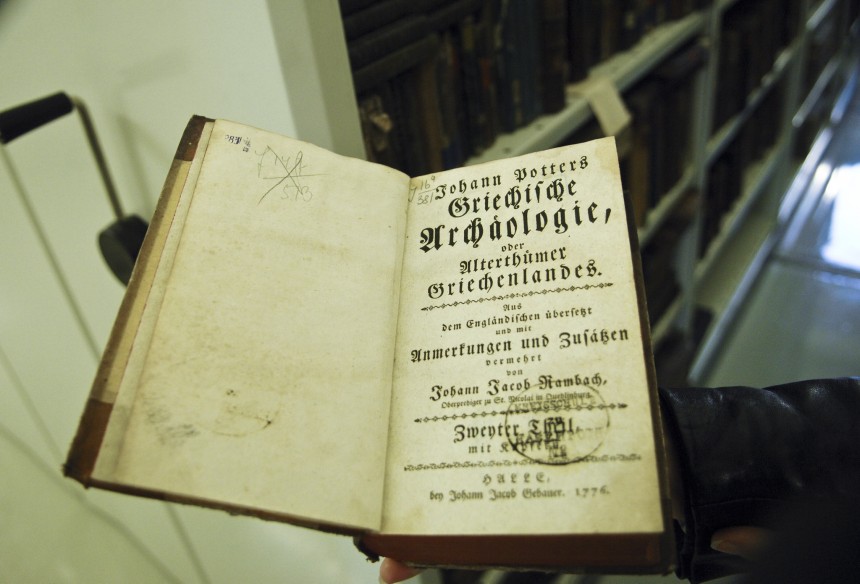 Johann Potters
Griechische
Archäologie,
oder
Alterthümer
Griechenlandes.
Aus
dem Engländischen übersetzt
und mit
Anmerkungen und Zusätzen
vermehrt
von
Johann Jacob Rambach,
Oberprediger zu St. Nicolai in Quedlinburg.
Zweyter Theil,
mit Kupfern.
HALLE,
bey Johann Jacob Gebauer. 1776.